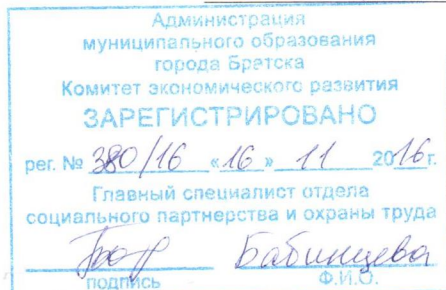 Администрация
муниципального образования
города Братска
Комитет экономического развития
ЗАРЕГИСТРИРОВАНО
рег. № 380/16 «16» 11 2016г.
Главный специалист отдела
социального партнерства и охраны труда
Бабинцева
подпись Ф.И.О.